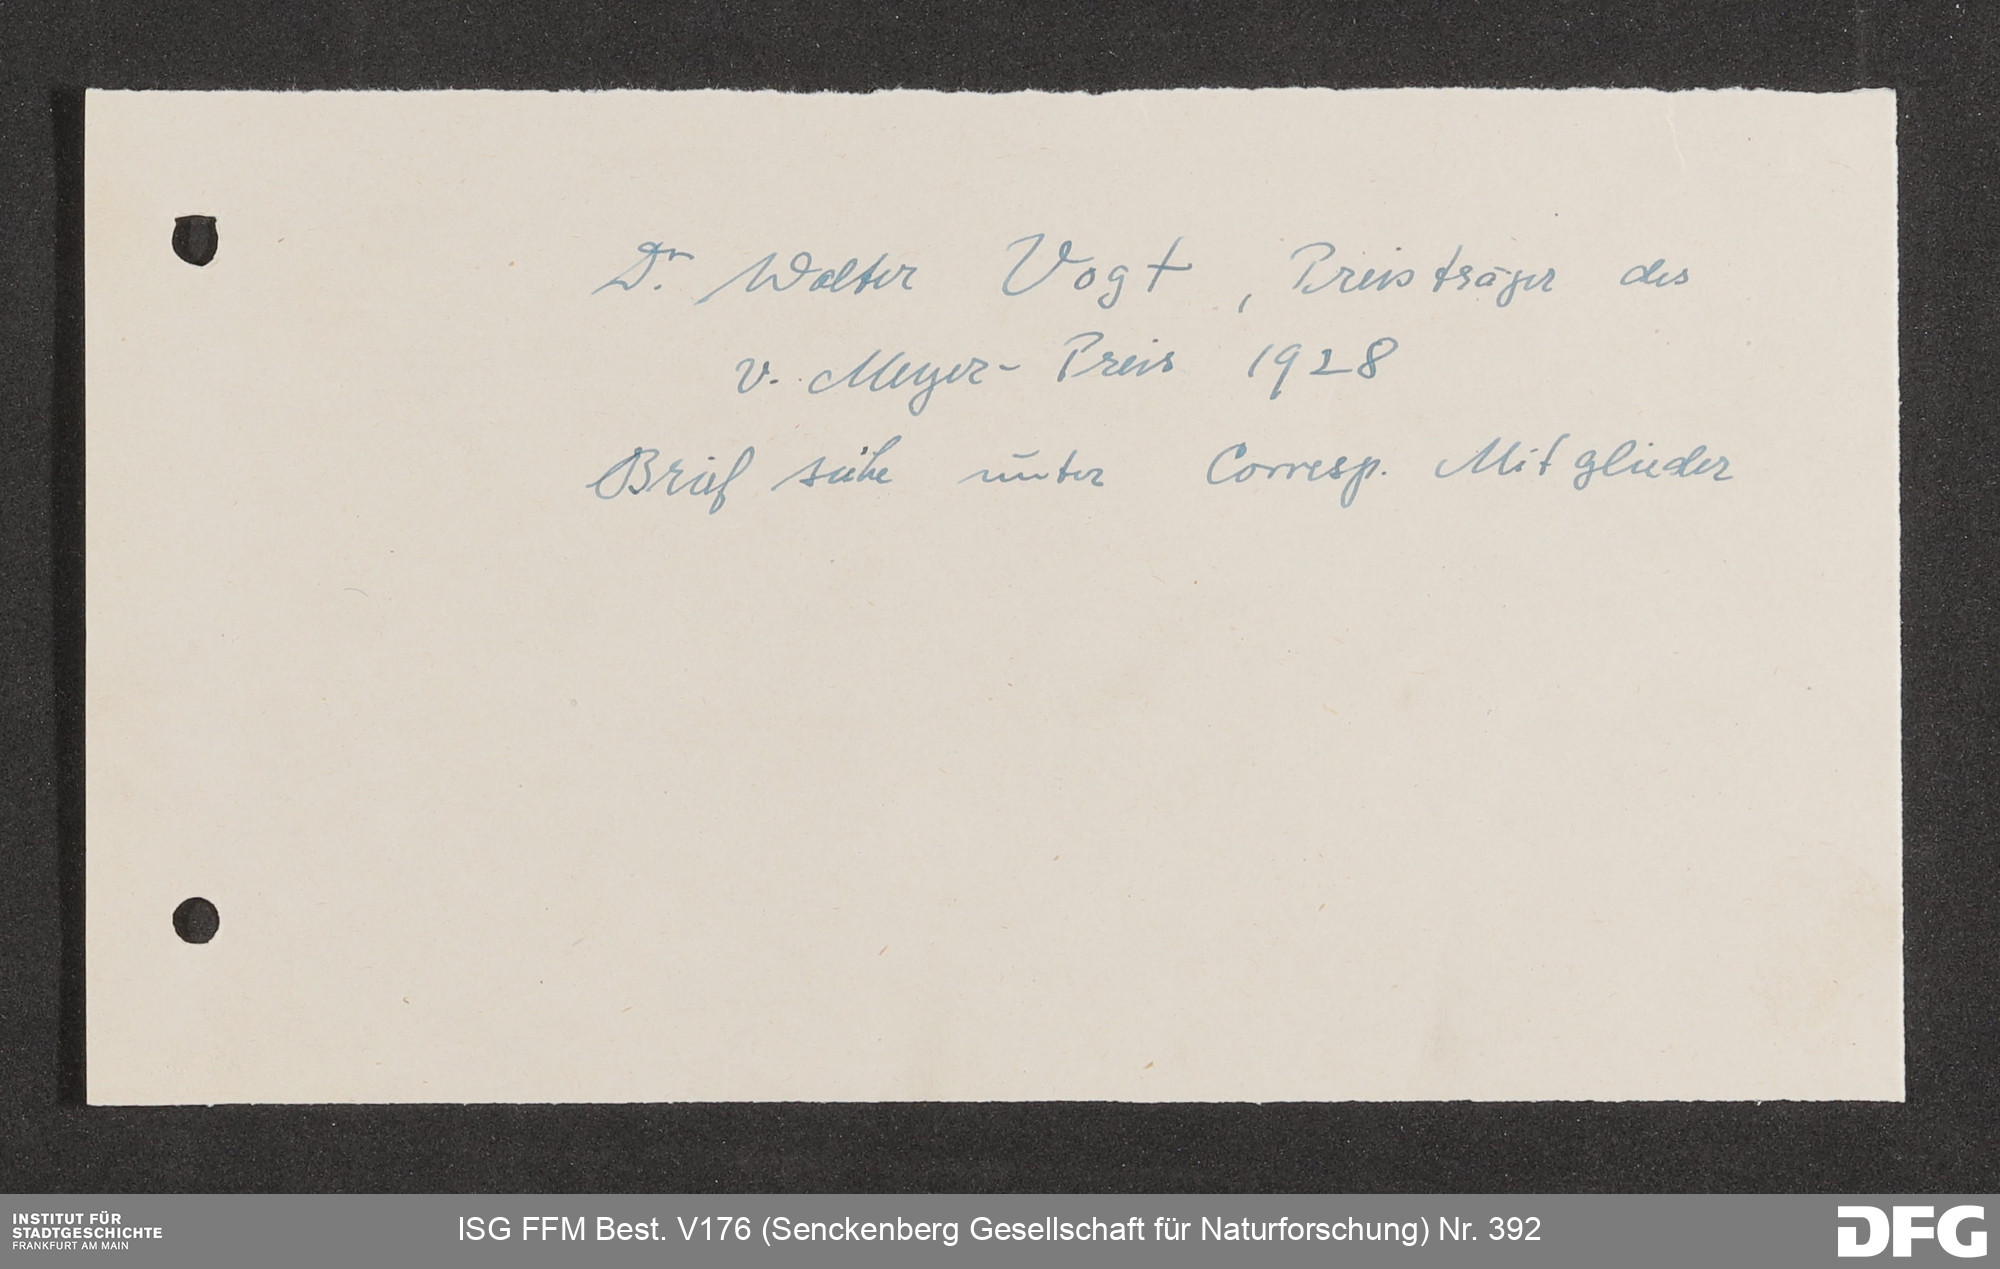 Dr. Walter Vogt, Preisträger des
v. Meyer-Preis 1928
Brief siehe unter Corresp. Mitglieder
INSTITUT FÜR
STADTGESCHICHTE
FRANKFURT AM MAIN
ISG FFM Best. V176 (Senckenberg Gesellschaft für Naturforschung) Nr. 392
DFG